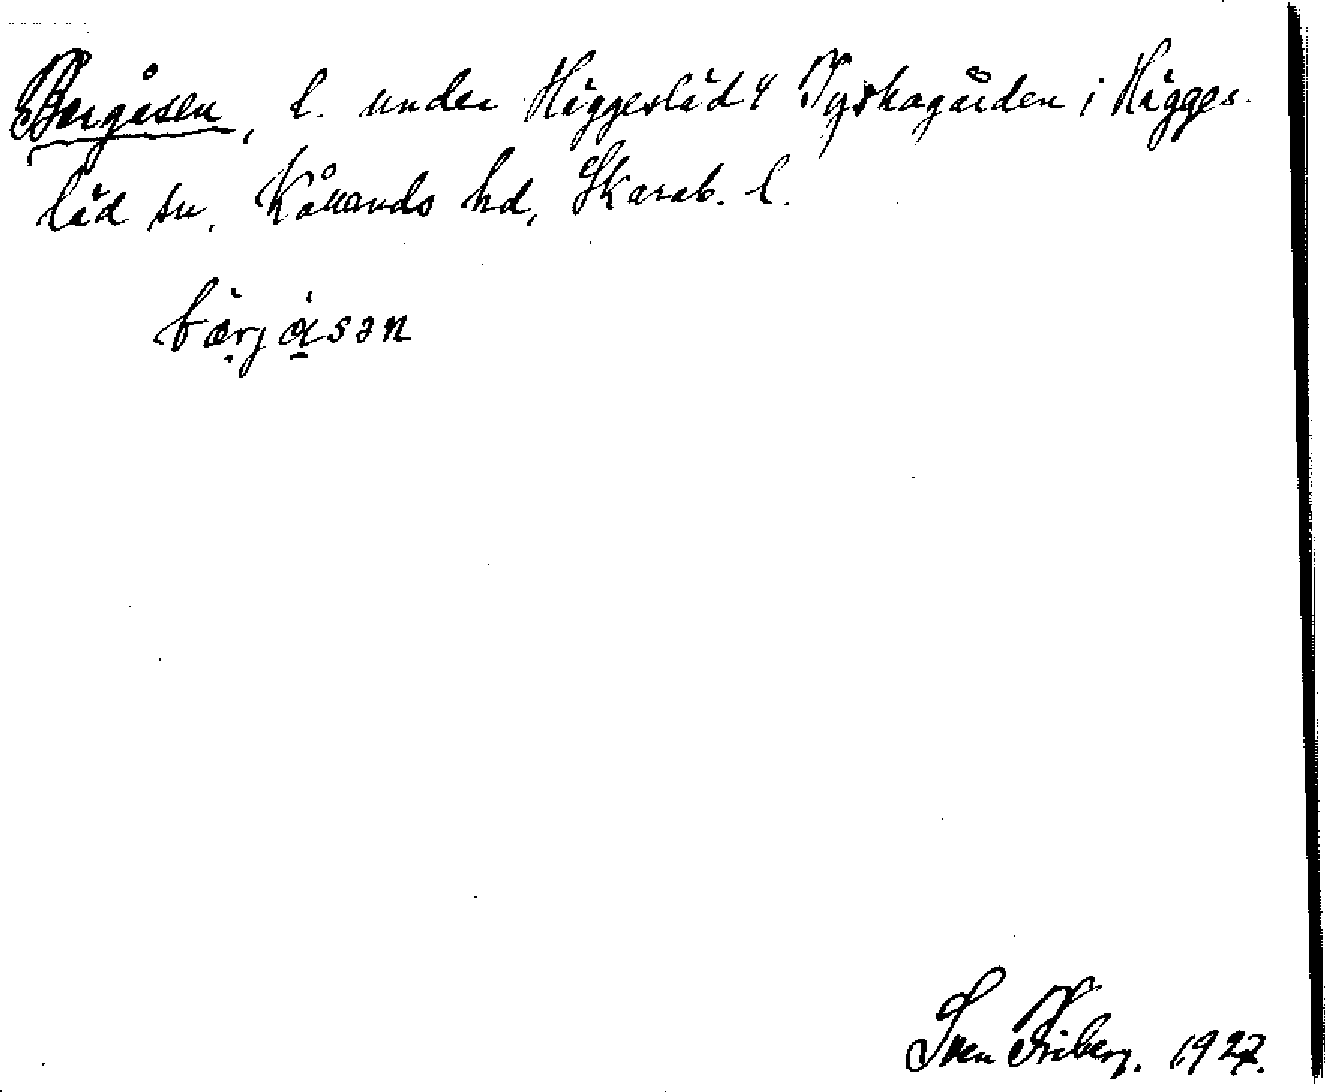 Bergåsen, l. under Häggesläd 4 Tyskagården i Hägges-
läd sn, Kållands hd, Skarab. l.
bärjåsən
Sven Friberg. 1927.